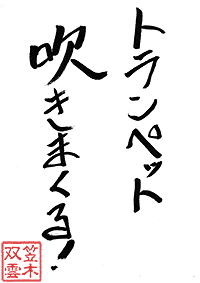 トランペット
吹きまくる!
笠木
双雲